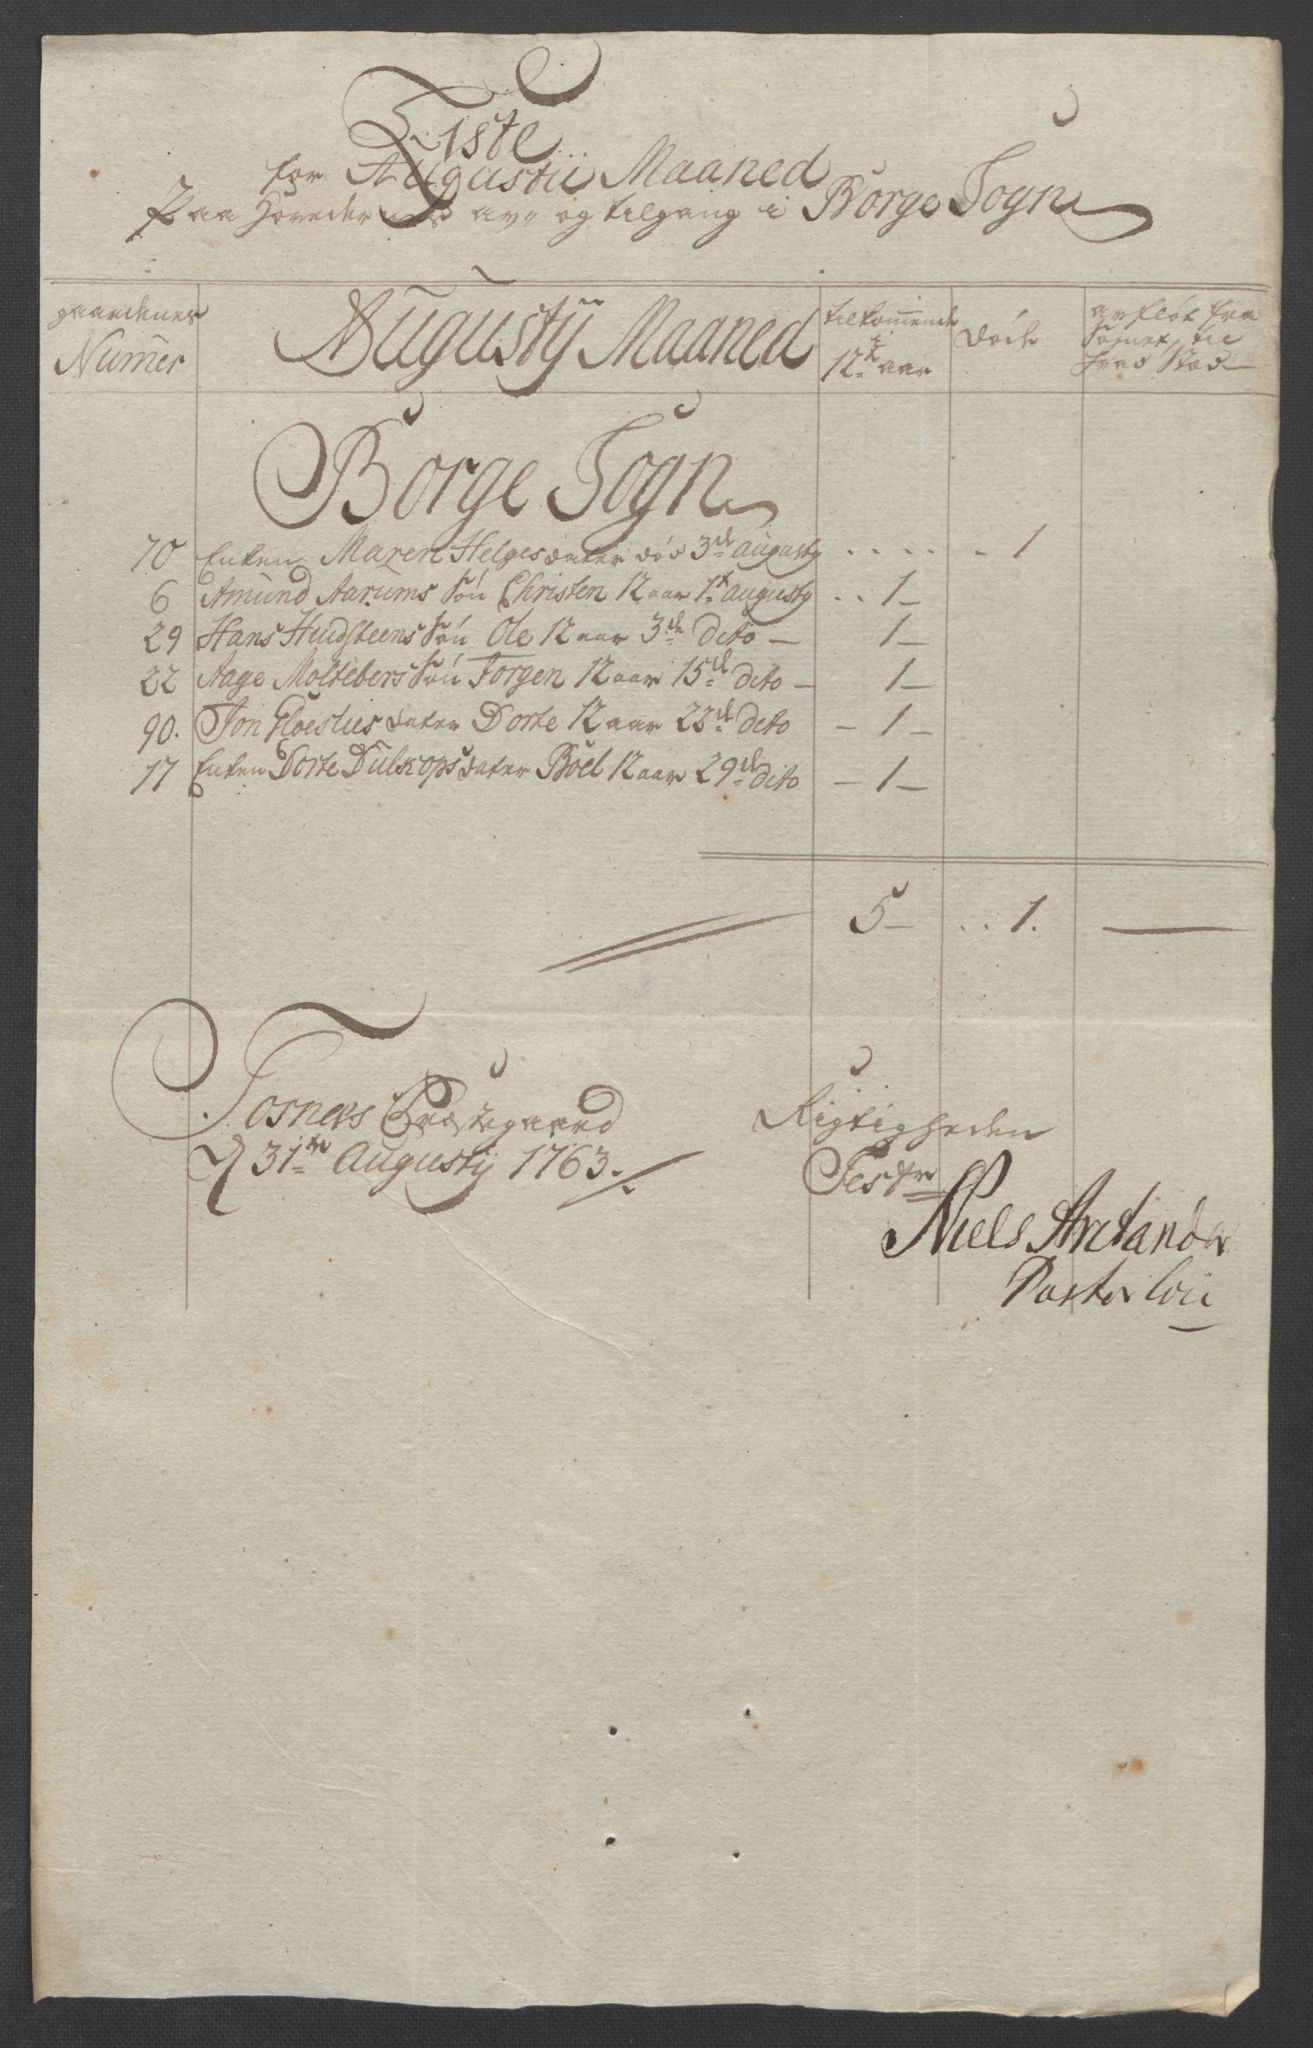 Liste
for Augustii Maaned
Paa Hoveder av- og tilgang i Borge Sogn
gaardenes Numer
Augustÿ Maaned
tilkommende i 12te aar
døde
avfløt fra Sognet til hvad Stæd
Borge Sogn
70 Enken Maren Helgesdatter død 3de augustÿ . . . . . - 1
6 Amund Aarums Søn Christen 12 aar 1te augustÿ . . 1 -
29 Hans Hudsteens Søn Ole 12 aar 3de dito - 1 -
22 Aage Moltebers Søn Jørgen 12 aar 15de dito - 1 -
90. Jon Floesties datter Dorte 12 aar 22de dito - 1 -
17 Enken Dorte Dulskops datter Boel 12 aar 29de dito - 1 -
5 - . . 1. -
Torsnes Præstegaard
d 31te Augustÿ 1763.
Rigtigheden
Testr
Niels Arctander
Pastor loci